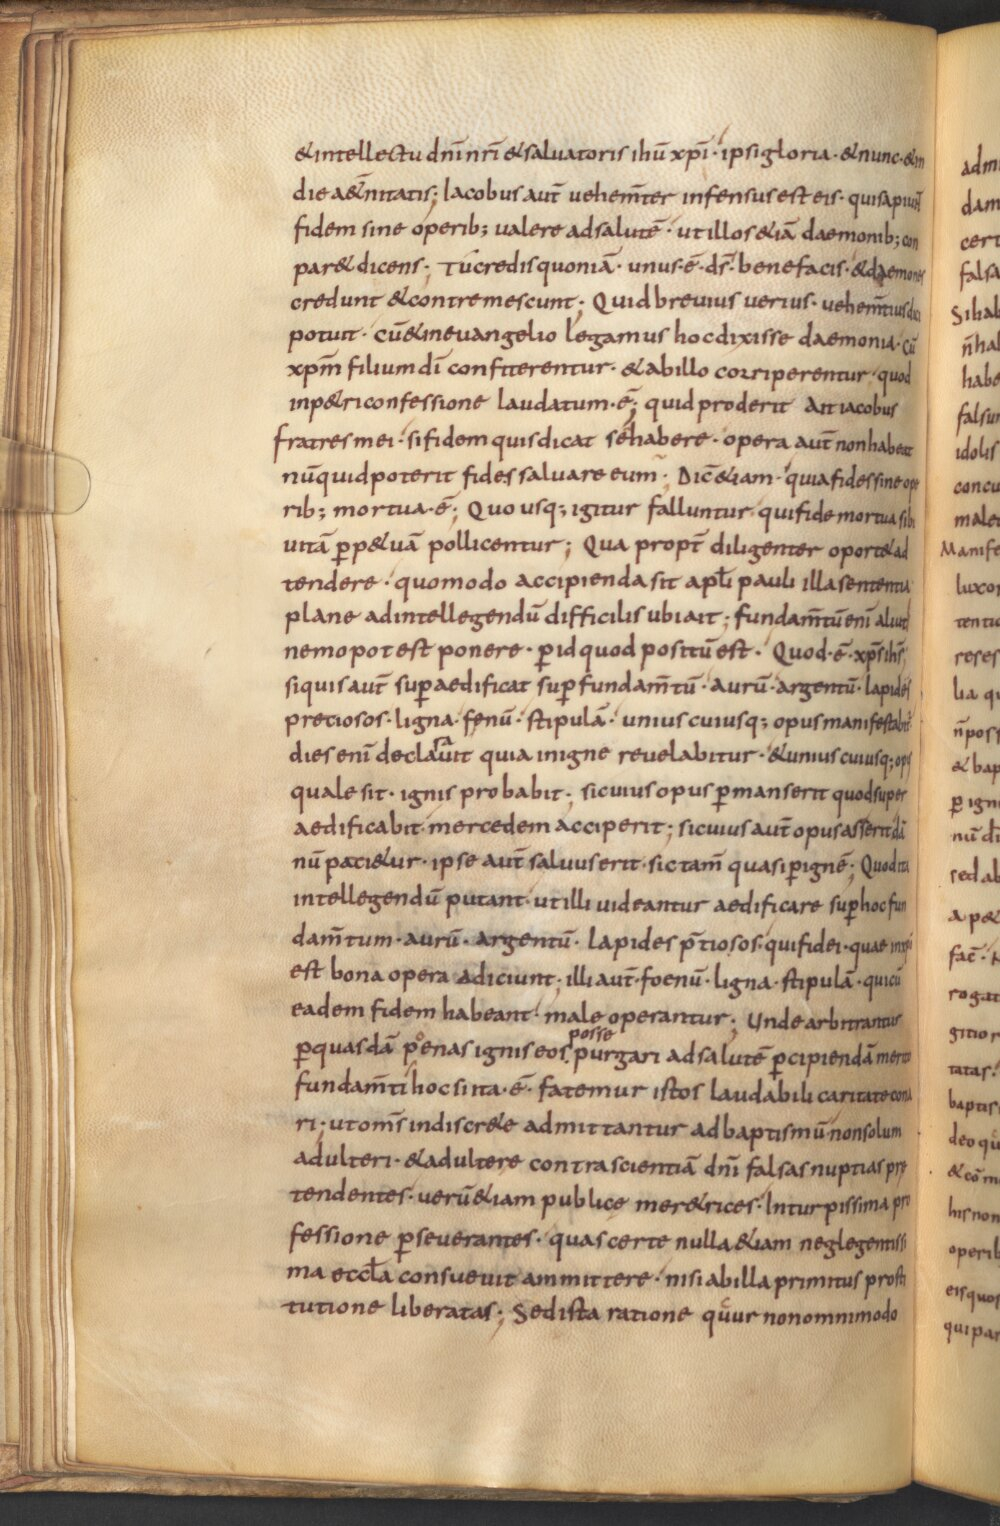 &intellectu dn̄i nr̄i &saluatoris ihū xp̄i · ipsi gloria · &nunc · &in
die a&̄nitatis; Iacobus aut̄ uehem̄ter infensus est eis · qui sapiunt̄
fidem sine operib; ualere ad salutē · ut illos &iā daemonib; con
par& dicens; Tu credis quoniā · unus · ē · ds̄ · bene facis · &daemones
credunt &contremescunt; Quid breuius uerius · uehem̄tius dici
potuit · cū &in euangelio legamus hoc dixisse daemonia · cū
xpm̄ filium dī confiterentur · &ab illo corriperentur · quod
in p&ri confessione laudatum · ē; quid proderit Ait iacobus
fratres mei · si fidem quis dicat se habere · opera aut̄ non habeat
nūquid poterit fides saluare eum · Dic̄ &iam · quia fides sine ope
rib; mortua · ē; Quo usq; igitur falluntur qui fide mortua sibi
uitā ꝑp&uā pollicentur; Qua propt̄ diligenter oport& ad
tendere · quomodo accipienda sit apl̄i pauli illa sententia
plane ad intellegendū difficilis ubi ait; fundam̄tū enī aliud
nemo potest ponere · ꝑ id quod positū est · Quod · ē · xp̄s ihs̄;
si quis aut̄ suꝑ aedificat suꝑ fundam̄tū · aurū · argentū · lapides
preciosos · ligna · fenū · stipulā · unius cuiusq; opus manifestabit̄
dies enī declarauit quia in igne reuelabitur · &unius cuiusq; opus
quale sit · ignis probabit; si cuius opus ꝑmanserit quod super
aedificabit mercedem acciperit; si cuius aut̄ opus asserit dā
nū paci&ur · ipse aut̄ saluus erit · sic tam̄ quasi ꝑ ignē; Quod ita
intellegendū putant · ut illi uideantur aedificare suꝑ hoc fun
dam̄tum · aurū · argentū · lapides p̄tiosos · qui fidei · quae in xp̄o
est bona opera adiciunt; illi aut̄ · foenū · ligna · stipulā · qui cū
eadem fidem habeant · male operantur; Unde arbitrantur
ꝑ quasdā poenas ignis eos posse purgari ad salutē ꝑcipiendā merito
fundam̄ti hoc si ita · ē · fatemur istos laudabili caritate cona
ri · ut om̄s indiscr&e admittantur ad baptismū non solum
adulteri · &adultere contra scientiā dn̄i falsas nuptias pre
tendentes · uerū &iam publice mer&rices · In turpissima pro
fessione ꝑseuerantes · quas certe nulla &iam neglegentissi
ma eccl̄a consueuit ammittere · nisi ab illa primitus prosti
tutione liberatas; Sed ista ratione qur non omnimodo